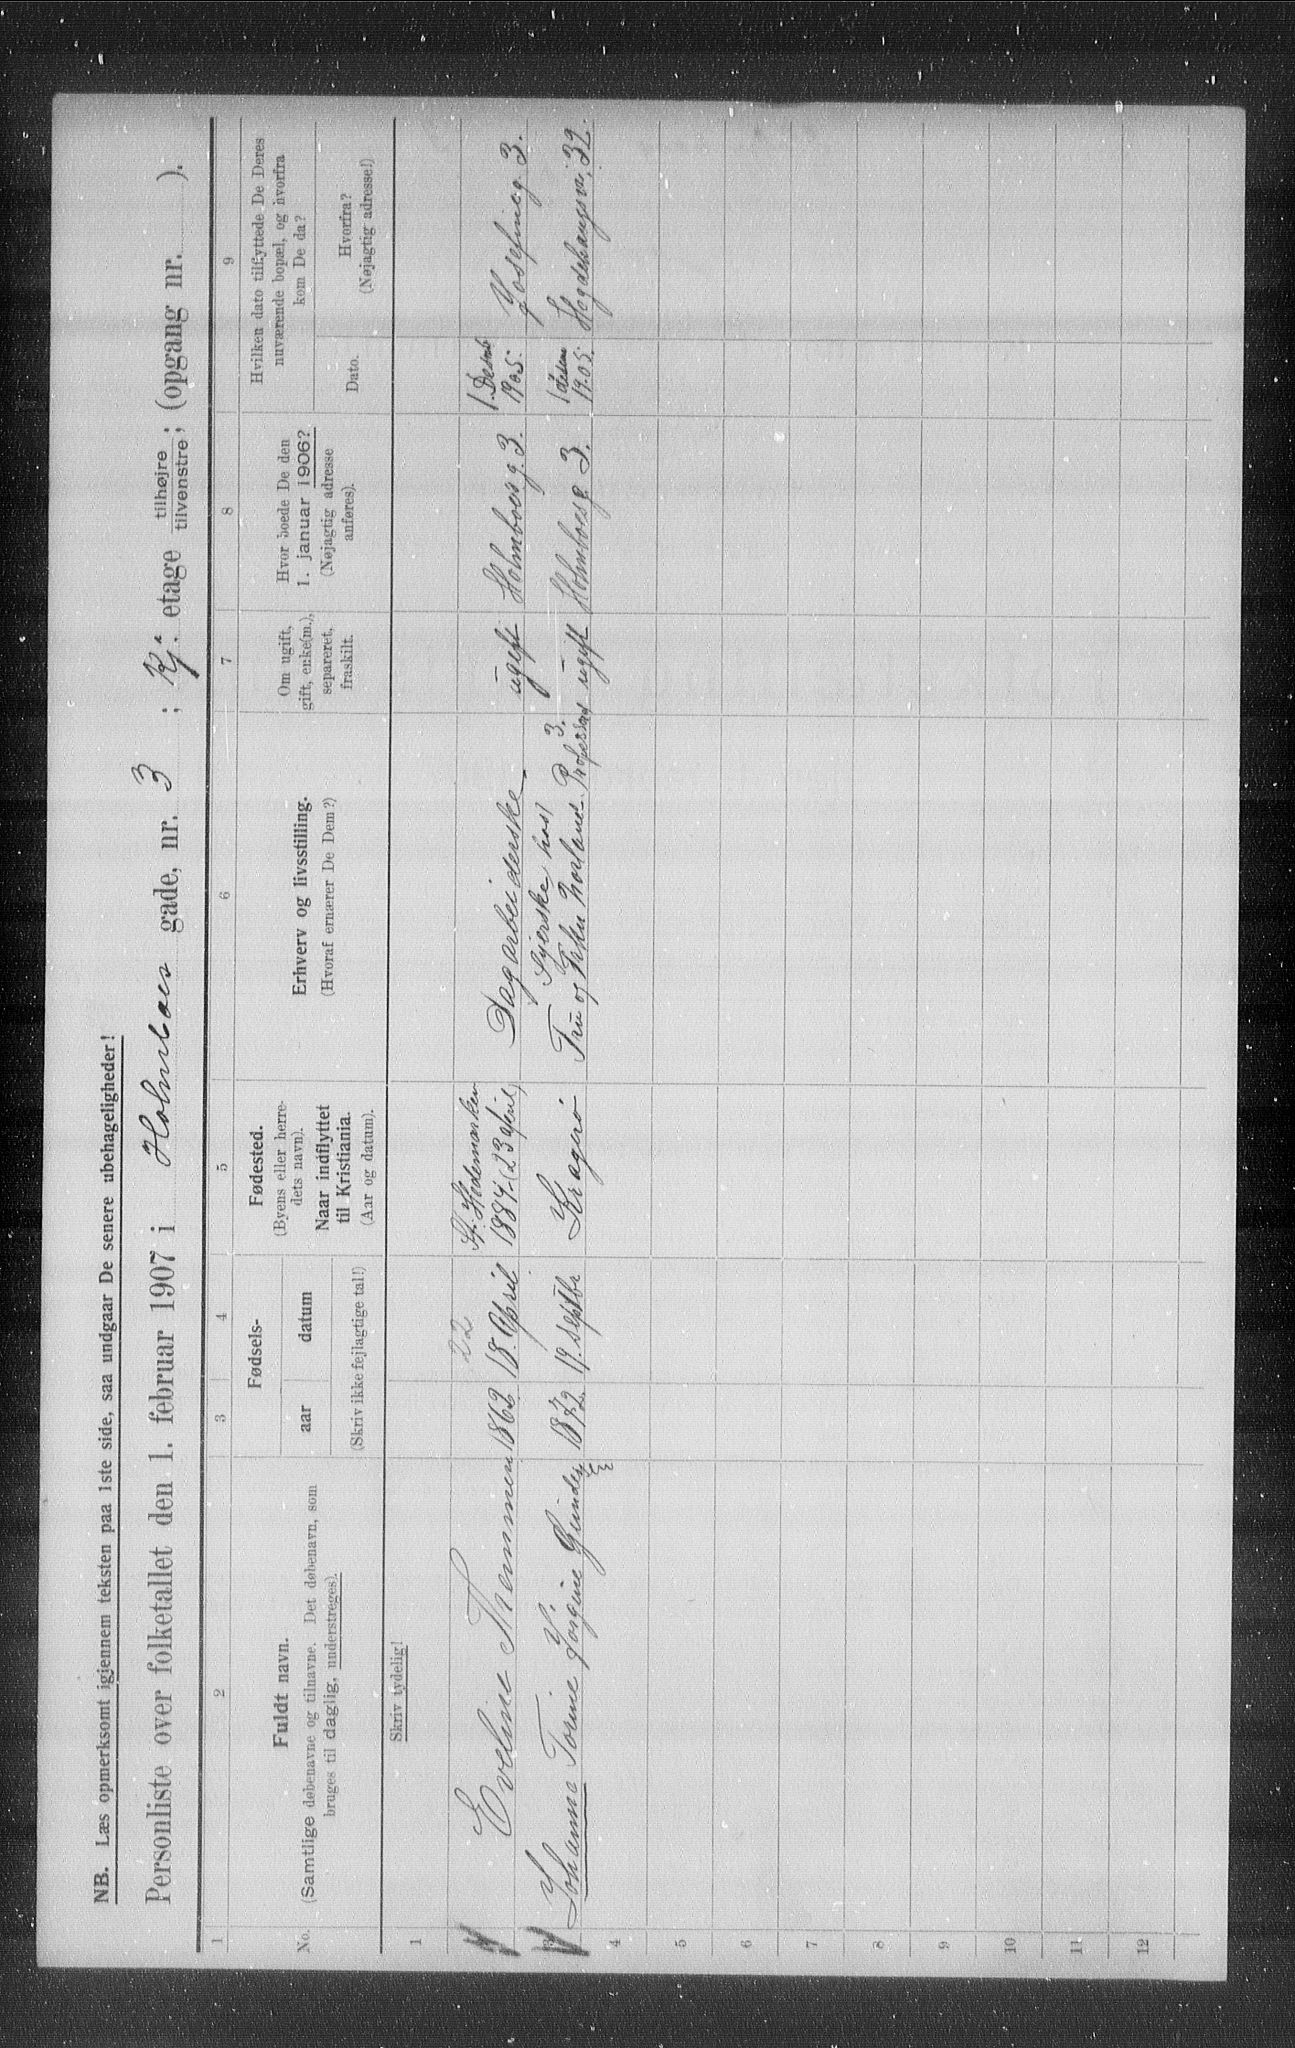 NB. Læs opmerksomt igjennem teksten paa 1ste side, saa undgaar De senere ubehageligheder!
Personliste over folketallet den 1. februar 1907 i Holmboes gade, nr. 3 ; Kj. etage tilhøjre tilvenstre; (opgang nr. ).
1 2 3 4 5 6 7 8 9
No.
Fuldt navn.
(Samtlige døbenavne og tilnavne. Det døbenavn, som
bruges til daglig, understreges).
Fødsels-
aar datum
(Skriv ikke fejlagtige tal!)
Fødested.
(Byens eller herre-
dets navn).
Naar indflyttet
til Kristiania.
(Aar og datum).
Erhverv og livsstilling.
(Hvoraf ernærer De Dem?)
Om ugift,
gift, enke(m.),
separeret,
fraskilt.
Hvor boede De den
1. januar 1906?
(Nøjagtig adresse
anføres).
Hvilken dato tilflyttede De Deres
nuværende bopæl, og hvorfra
kom De da?
Dato.
Hvorfra?
(Nøjagtig adresse!)
Skriv tydelig!
1
22
St. Hedemarken
Eveline 1862 18. April 1884. (23 April) Dagarbeiderske ugift Holmboesg. 3. 1. 1905. Josefineg. 3.
3 Syerske hos 3.
Johanna Torine 1872 19. Septbr Kragerø Fru og ugift Holmboesg. 3. 1 1905. 32.
4
5
6
7
8
9
10
11
12